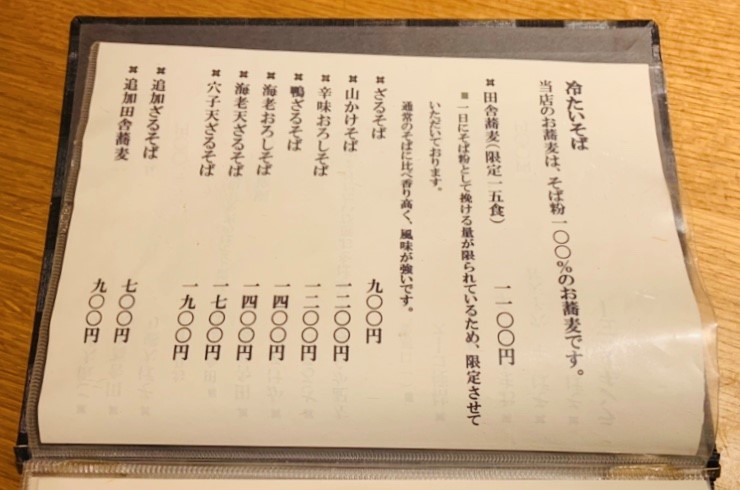 冷たいそば
当店のお蕎麦は、そば粉一〇〇%のお蕎麦です。
✖田舎蕎麦(限定一五食) 一一〇〇円
※一日にそば粉として挽ける量が限られているため、限定させて
いただいております。
通常のそばに比べ香り高く、風味が強いです。
✖ざるそば 九〇〇円
✖山かけそば 一二〇〇円
✖辛味おろしそば 一二〇〇円
✖鴨ざるそば 一四〇〇円
✖海老おろしそば 一四〇〇円
✖海老天ざるそば 一七〇〇円
✖穴子天ざるそば 一九〇〇円
✖追加ざるそば 七〇〇円
✖追加田舎蕎麦 九〇〇円